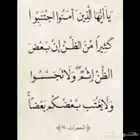 يَا أَيُّهَا الَّذِينَ آمَنُوا اجْتَنِبُوا
كَثِيرًا مِّنَ الظَّنِّ إِنَّ بَعْضَ
الظَّنِّ إِثْمٌ وَلَا تَجَسَّسُوا
وَلَا يَغْتَب بَّعْضُكُم بَعْضًا
الحجرات